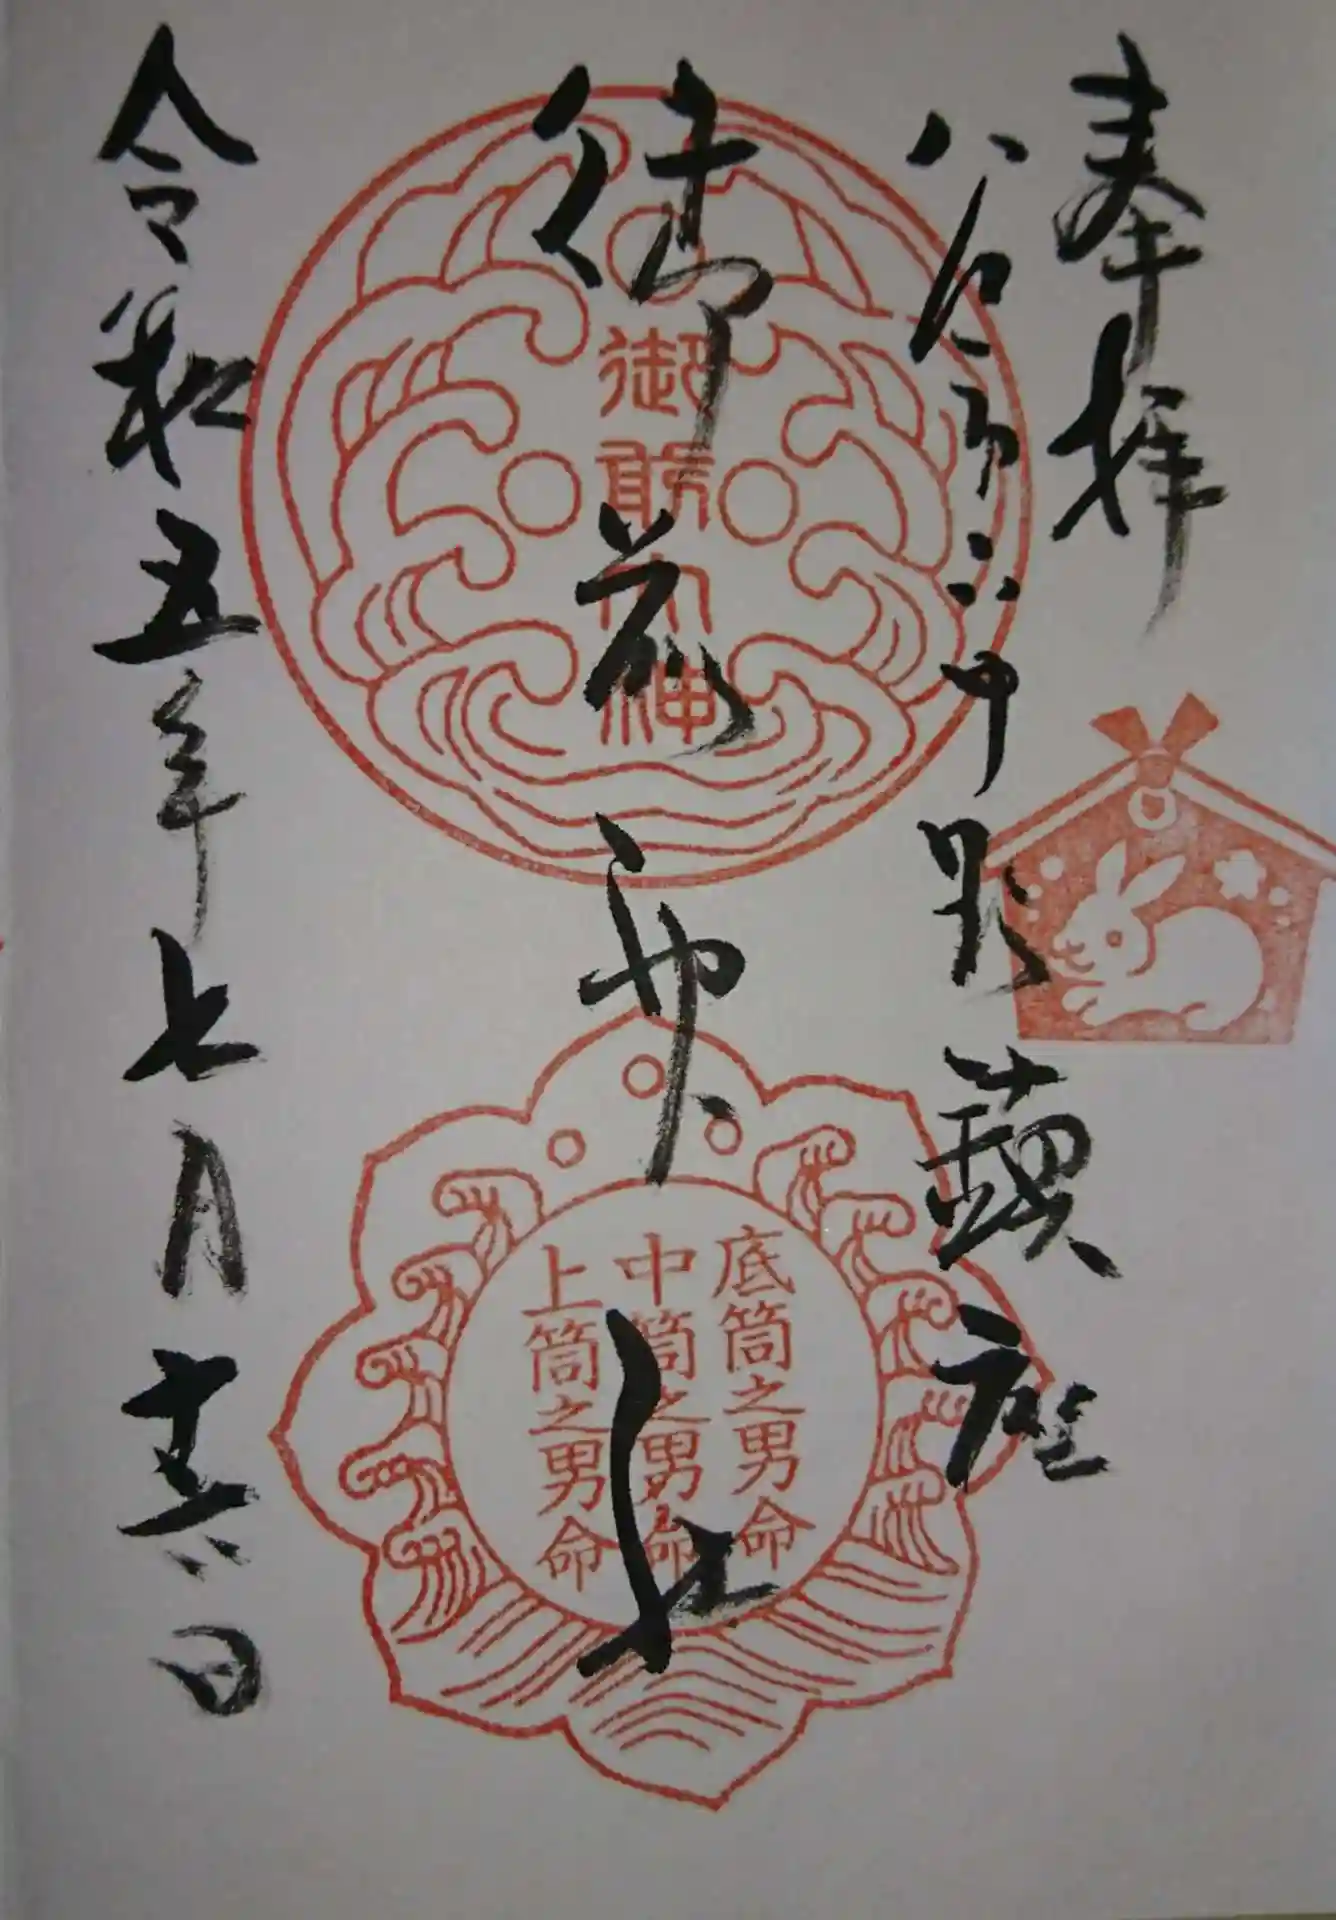 奉拝
八戸市小中野鎮座
御前神社
御前大神
底筒之男命
中筒之男命
上筒之男命
令和五年七月十六日